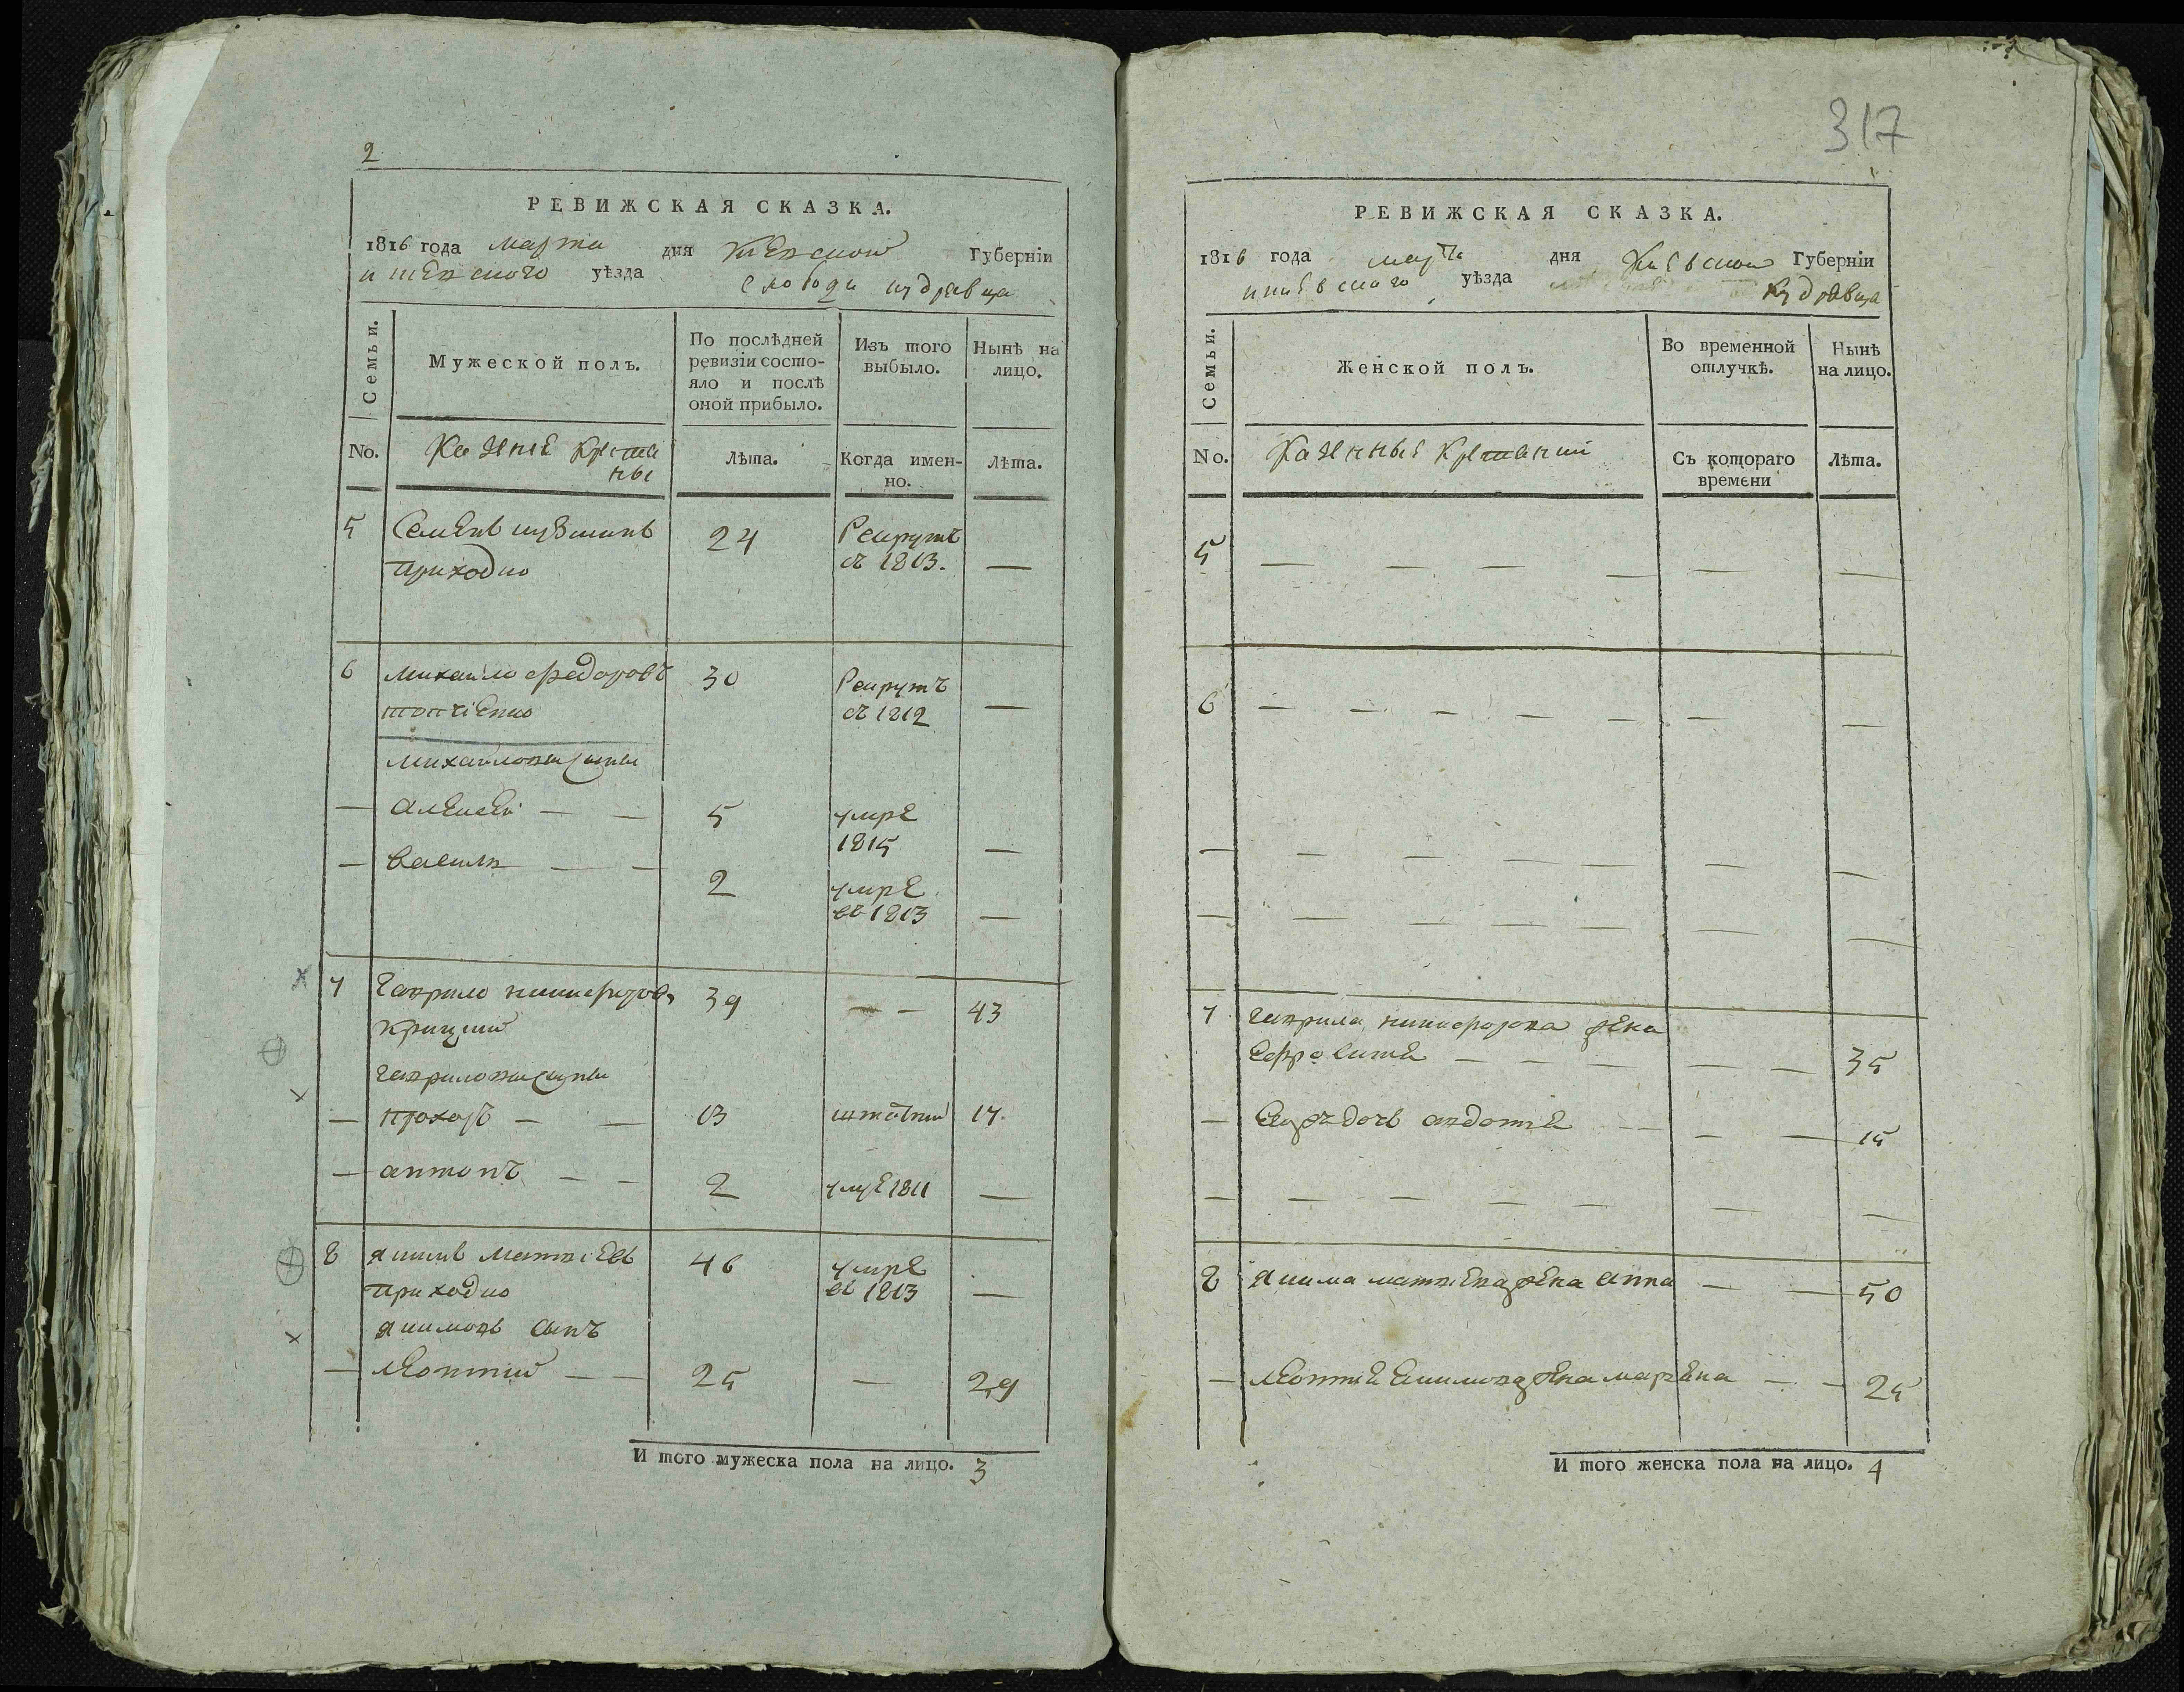 2
РЕВИЖСКАЯ СКАЗКА.
1816 года марта дня Киевской Губерніи
и Киевского уѣзда слободи кудравца
Семьи.
Мужеской полъ.
По послѣдней ревизіи состо-
яло и послѣ
оной прибыло.
Изъ того
выбыло.
Нынѣ на
лицо.
No.
Казные крстиа
ны
Лѣта.
Когда имен-
но.
Лѣта.
5 Семенъ кузминъ 24 Рекрутъ
приходко съ 1813. —
6 михайло федоровъ 30 Рекрутъ
топчіенко съ 1812 —
михайлови сыны
— Алексей — — 5 умре
1815 —
— василь — — 2 умре
въ 1813 —
7 гаврило никифоровъ 39 — — 43
крицкий
гаврилови сыны
— прохоръ — — 13 17.
— антонъ — — 2 умре 1811 —
8 якимъ матвіевъ 46 умре
приходко въ 1813 —
якимовъ сынъ
— леонтий — — 25 — 29
И того мужеска пола на лицо. 3
317
РЕВИЖСКАЯ СКАЗКА.
1816 года марта дня Киевской Губерніи
и киевского уѣзда Кудравца
Семьи.
Женской полъ.
Во временной
отлучкѣ.
Нынѣ
на лицо.
No.
Казенные
Съ котораго
времени
Лѣта.
5 — — — — — —
6 — — — — — — —
— — — — — — —
— — — — — — —
7 гаврила никифорова жена
— — — — — 35
— дочь авдотия — — — — 15
— — — — — — —
8 якима матвиева жена анна — — 50
— леонтия якимова жена марина — — 25
И того женска пола на лицо. 4